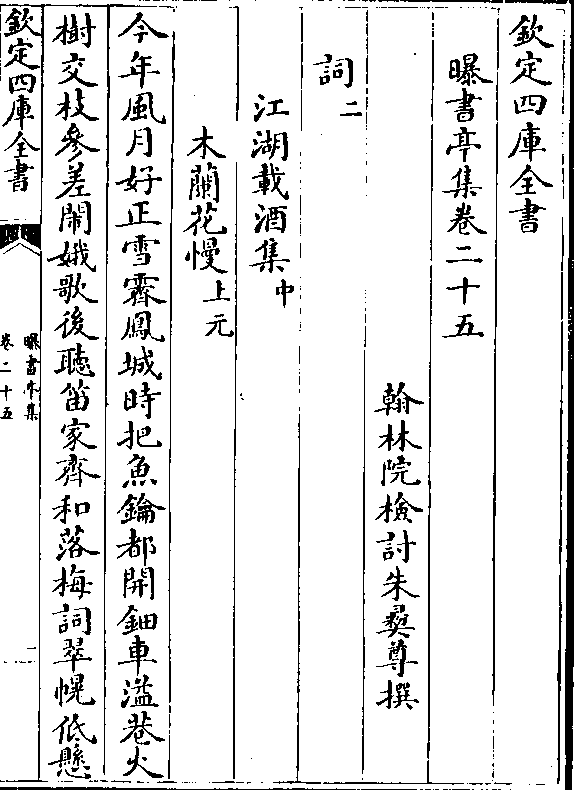 欽定四庫全書
曝書亭集卷二十五
翰林院檢討朱彞尊撰
詞二
江湖載酒集中
木蘭花慢上元
今年風月好正雪霽鳳城時把魚鑰都開鈿車溢巷火
樹交枝參差鬧娥歌後聽笛家齊和落梅詞翠幌低懸
欽定四庫全書
曝書亭集
卷二十五
一